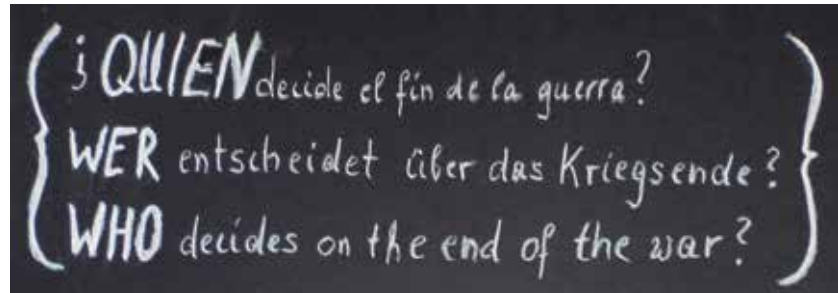 ¿QUIEN decide el fin de la guerra?
WER entscheidet über das Kriegsende?
WHO decides on the end of the war?